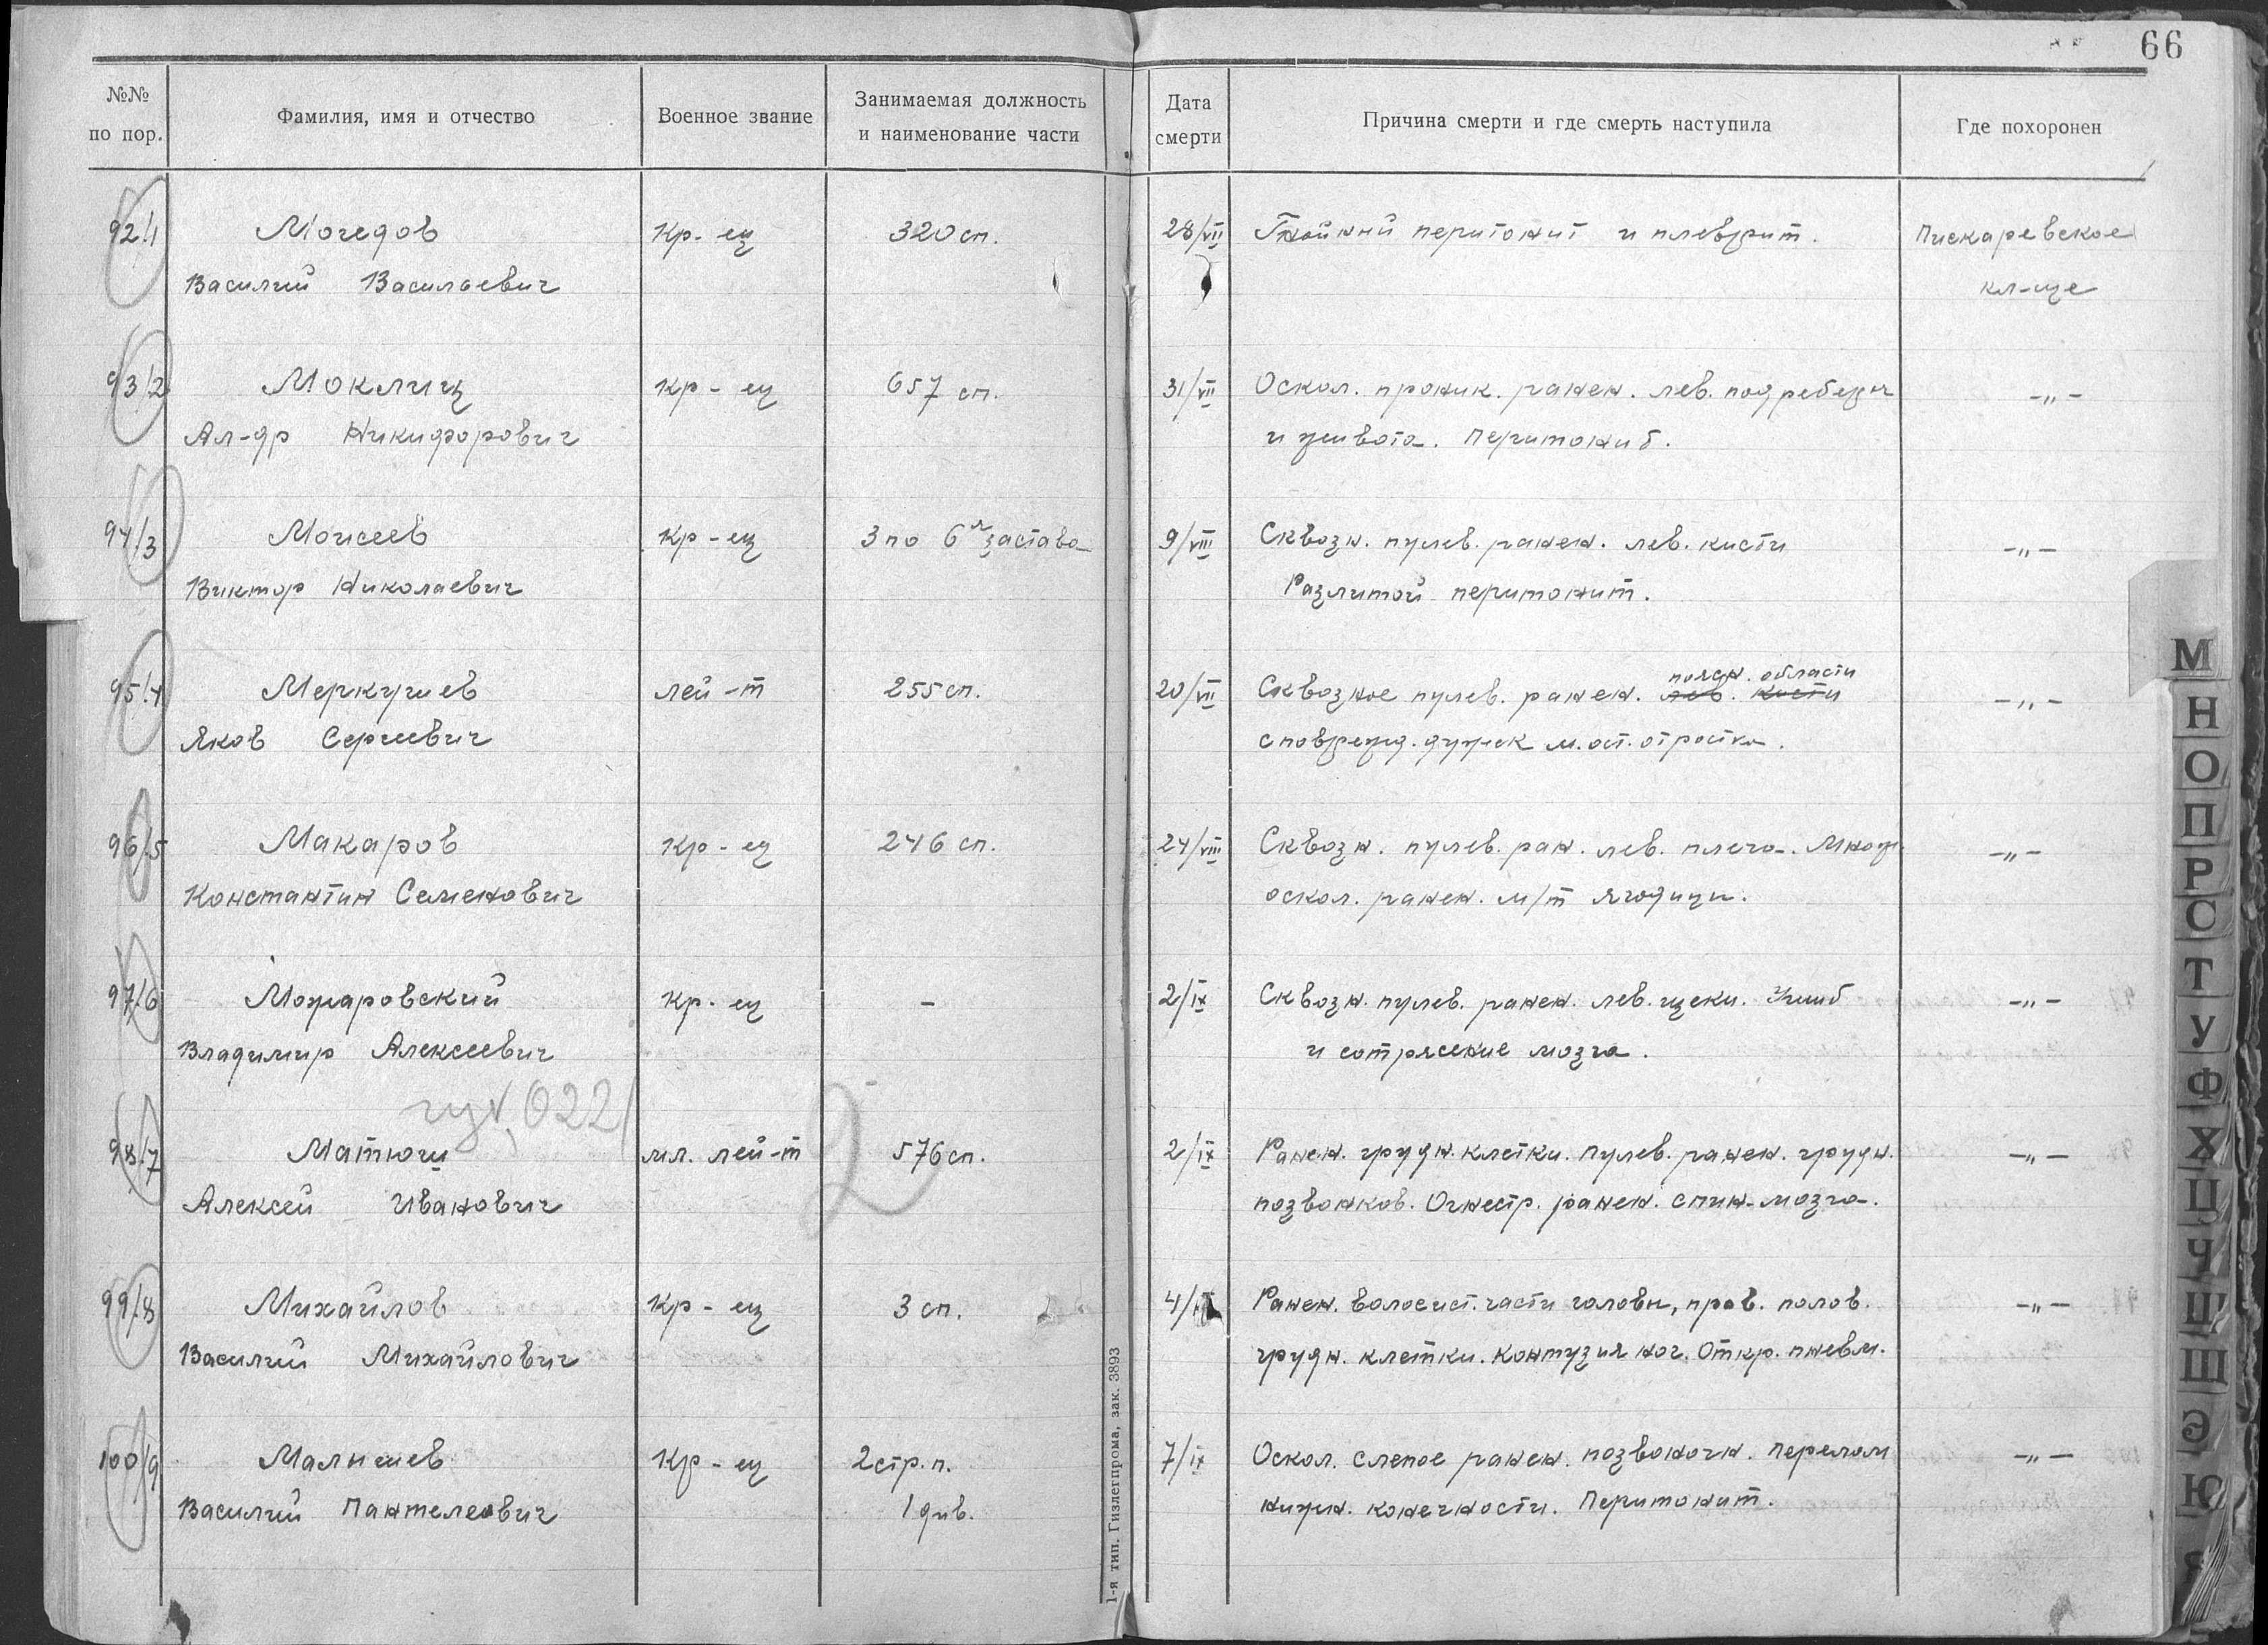 66
№№ по пор. Фамилия, имя и отчество Военное звание Занимаемая должность и наименование части Дата смерти Причина смерти и где смерть наступила Где похоронен
92/1 Могедов Кр-ец 320 сп. 28/VII Гнойный перитонит и плеврит. Пискаревское
Василий Васильевич кл-ще
93/2 Моклиц кр-ец 657 сп. 31/VII Оскол. проник. ранен. лев. подреберн -"-
Ал-др Никифорович и живота. Перитонит.
94/3 Моисеев Кр-ец 3 по 6я застава 9/VIII Сквозн. пулев. ранен. лев. кисти -"-
Виктор Николаевич Разлитой перитонит.
поясн. области
95/4 Меркушев лей-т 255 сп. 20/VII Сквозное пулев. ранен. лев. кисти -"-
Яков Сергеевич с поврежд. дужек м. ост. отростка.
96/5 Макаров Кр-ец 246 сп. 24/VIII Сквозн. пулев. ран. лев. плеча. Множ. -"-
Константин Семенович оскол. ранен. м/т ягодицы.
97/6 Можаровский Кр-ец - 2/IX Сквозн. пулев. ранен. лев. щеки. Ушиб -"-
Владимир Алексеевич и сотрясение мозга.
022 2
98/7 Матюш мл. лей-т 576 сп. 2/IX Ранен. грудн. клетки. пулев. ранен. грудн. -"-
Алексей Иванович позвонков. Огнестр. ранен. спин. мозга.
99/8 Михайлов Кр-ец 3 сп. 4/IX Ранен. волосист. части головы, прав. полов. -"-
Василий Михайлович грудн. клетки. Контузия ног. Откр. пневм.
100/9 Малышев Кр-ец 2 стр. п. 7/IX Оскол. слепое ранен. позвоночн. перелом -"-
Василий Пантелевич 1 див. нижн. конечности. Перитонит.
1-я тип. Гизлегпрома, зак. 3893
М
Н
О
П
Р
С
Т
У
Ф
Х
Ц
Ч
Ш
Щ
Э
Ю
Я